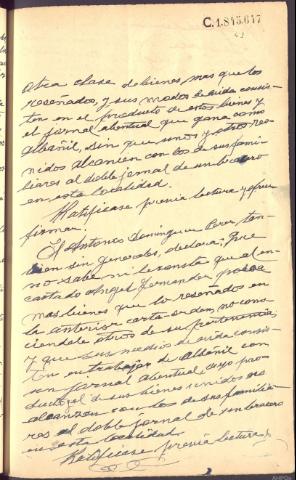 C.1.845.617
otra clase de bienes mas que los
reseñados, y sus medios de vida consis-
ten en el producto de estos bienes y
el jornal eventual que gana como
albañil, sin que unos y otros reu-
nidos alcancen con los de sus fami-
liares al doble jornal de un bracero
en esta localidad.
Ratificase previa lectura y
firma.
Antonio Dominguez Perez, tam-
bien sin generales, declara: Que
no sabe ni le consta que el en-
cartado Angel Fernandez posea
mas bienes que lo reseñados en
la anterior carta orden, no cono-
ciendole otros de su pertenencia,
y que sus medios de vida consis-
ten en trabajos de albañil con
un jornal eventual, cuyo pro-
ducto el de sus bienes unidos no
alcanzan con los de sus familia-
res al doble jornal de un bracero
en esta localidad.
Ratificase previa lectura,